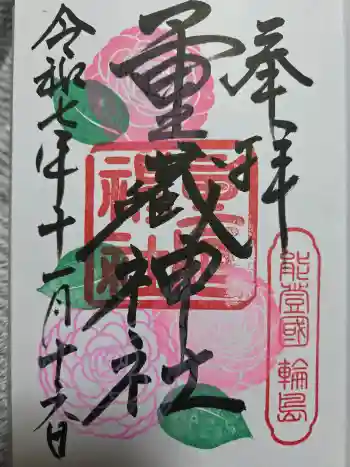 奉拝
能登國 輪島
重蔵神社
令和七年十一月十六日